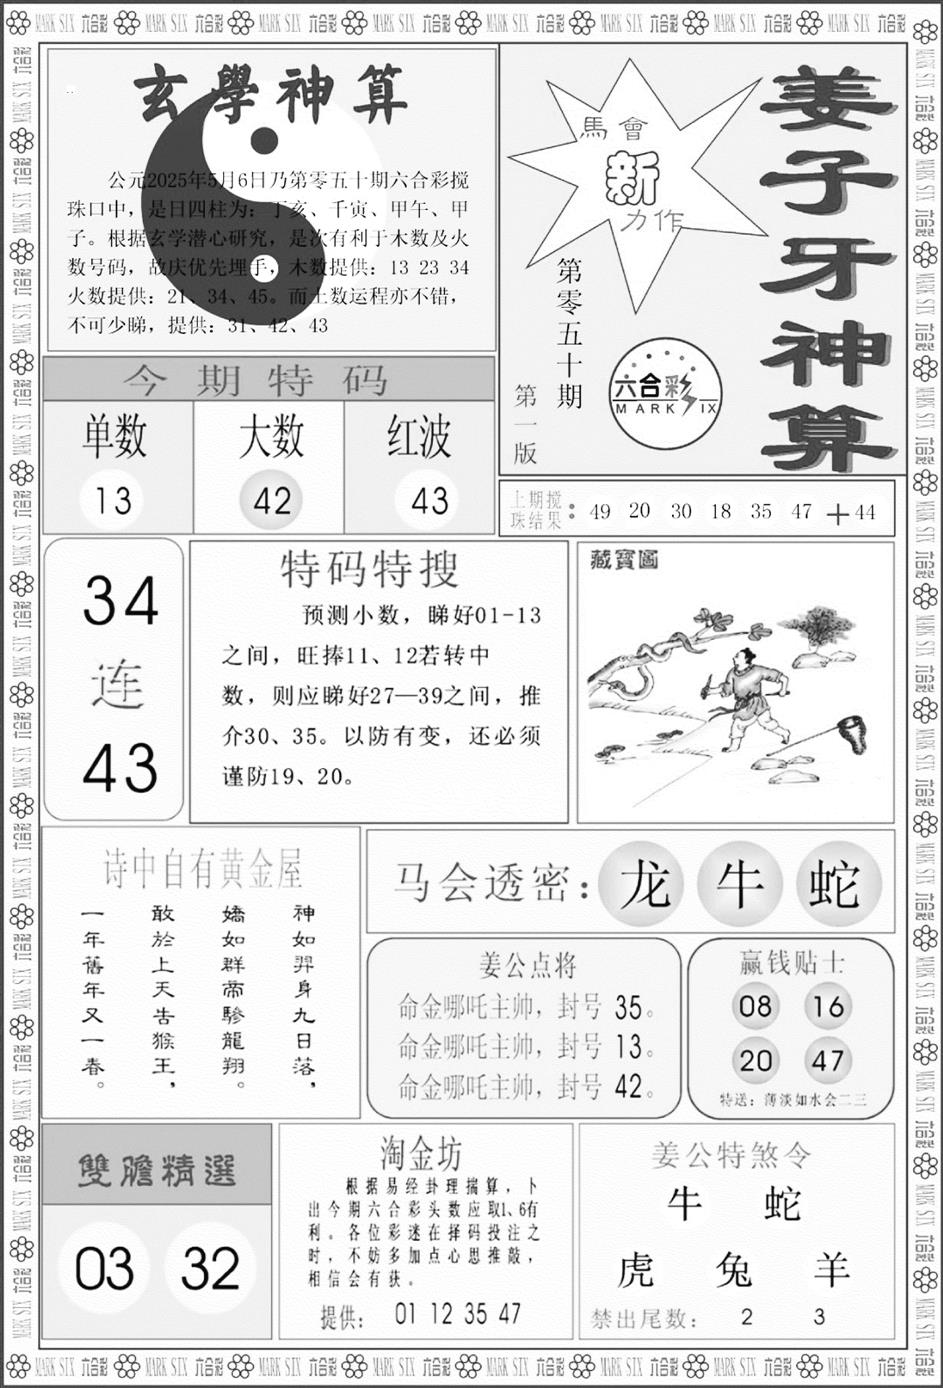 玄學神算
公元2025年5月6日乃第零五十期六合彩搅
珠口中，是日四柱为：丁亥、千寅、甲午、甲
子。根据玄学潜心研究，是次有利于木数及火
数号码，故庆优先埋手，木数提供：13 23 34
火数提供：21、34、45。而土数运程亦不错，
不可少睇，提供：31、42、43
馬會
新
力作
第零五十期
第一版
六合彩
MARK SIX
姜子牙神算
今期特码
单数 大数 红波
13 42 43
上期搅
珠结果：49 20 30 18 35 47 ＋44
34
连
43
特码特搜
预测小数，睇好01-13
之间，旺捧11、12若转中
数，则应睇好27—39之间，推
介30、35。以防有变，还必须
谨防19、20。
藏寶圖
诗中自有黄金屋
神如羿身九日落，
嬌如群帝驂龍翔。
敢於上天告猴王，
一年舊年又一春。
马会透密：龙 牛 蛇
姜公点将
命金哪吒主帅，封号 35。
命金哪吒主帅，封号 13。
命金哪吒主帅，封号 42。
赢钱贴士
08 16
20 47
特送：薄淡如水会二三
雙膽精選
03 32
淘金坊
根据易经卦理揣算，卜
出今期六合彩头数应取1、6有
利。各位彩迷在择码投注之
时，不妨多加点心思推敲，
相信会有获。
提供： 01 12 35 47
姜公特煞令
牛 蛇
虎 兔 羊
禁出尾数： 2 3